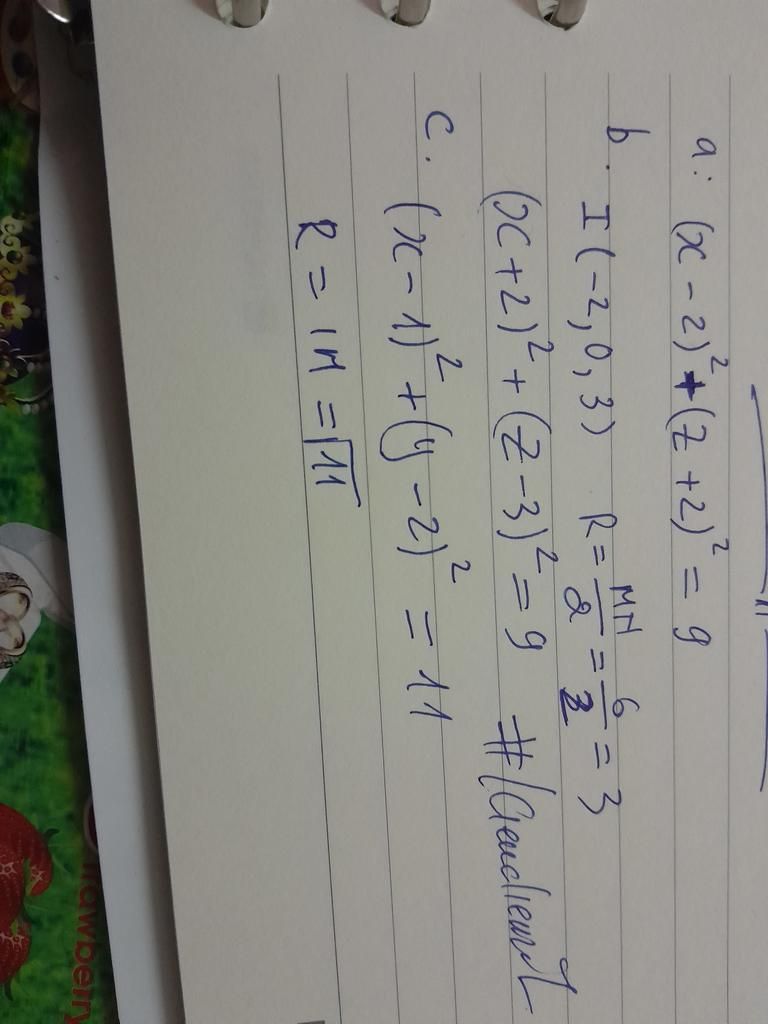 a: (x - 2)² + (z + 2)² = 9
b. I (-2, 0, 3) R = MN/2 = 6/2 = 3
(x + 2)² + (z - 3)² = 9 #
c. (x - 1)² + (y - 2)² = 11
R = IM = √11
trawberry